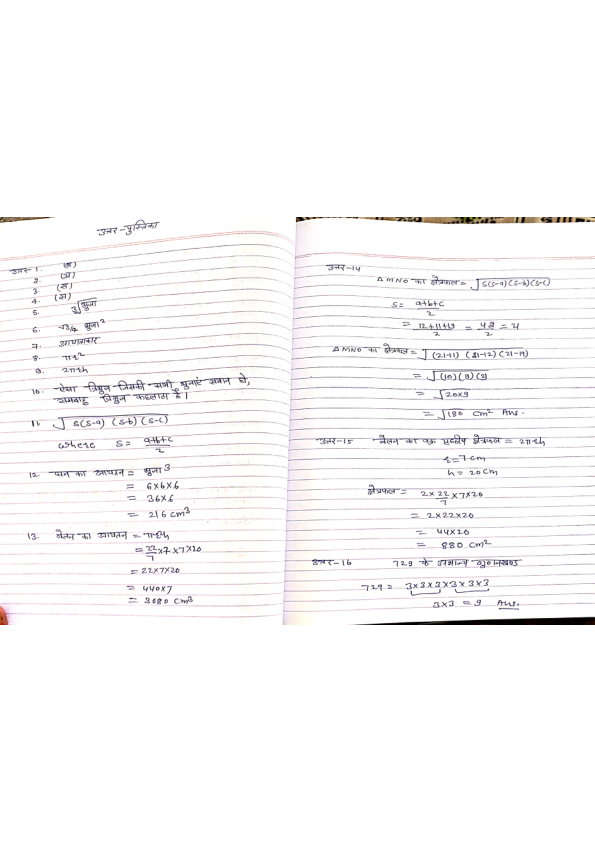 उत्तर-पुस्तिका
उत्तर-1. (अ)
2. (अ)
3. (स)
4. (अ)
5. 3√भुजा
6. √3/4 भुजा²
7.
8. πr²
9. 2πrh
10. ऐसा त्रिभुज जिसकी सभी भुजाएं समान हो,
समबाहु त्रिभुज कहलाता है।
11. √s(s-a) (s-b) (s-c)
where s = a+b+c/2
12. घन का आयतन = भुजा 3
= 6x6x6
= 36x6
= 216 cm³
13. बेलन का आयतन = πr²h
= 22/7 x7x7x20
= 22x7x20
= 440x7
= 3080 cm³
उत्तर-14
Δ MNO का क्षेत्रफल = √s(s-a)(s-b)(s-c)
s = a+b+c/2
= 12+11+19/2 = 42/2 = 21
Δ MNO का क्षेत्रफल = √(21-11) (21-12) (21-19)
= √(10)(9)(2)
= √20x9
= √180 cm² Ans.
उत्तर-15 बेलन का वक्र पृष्ठीय क्षेत्रफल = 2πrh
r = 7cm
h = 20cm
क्षेत्रफल = 2x22/7 x7x20
= 2x22x20
= 44x20
= 880 cm²
उत्तर-16 729 के अभाज्य गुणनखण्ड
729 = 3x3x3x3x3x3
3x3 = 9 Ans.